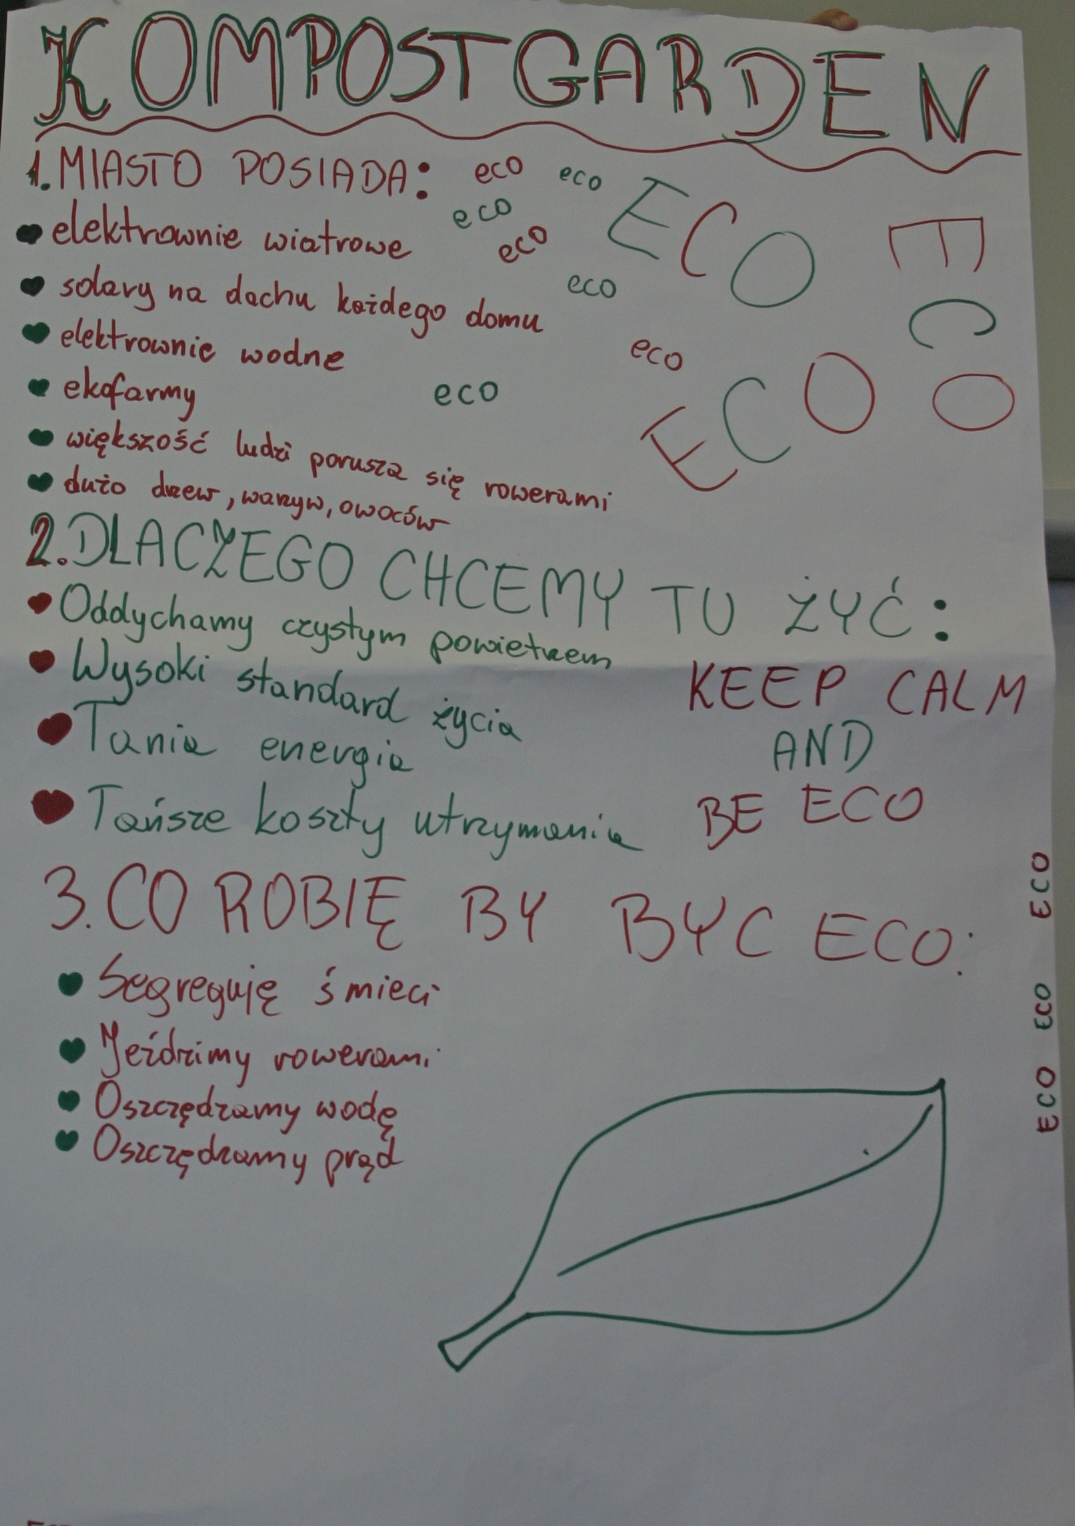 KOMPOSTGARDEN
1. MIASTO POSIADA:
eco eco
eco
eco
eco
ECO
ECO
elektrownie wiatrowe
solary na dachu każdego domu
elektrownie wodne
eco
ekofarmy
eco
ECO
większość ludzi porusza się rowerami
dużo drzew, warzyw, owoców
2. DLACZEGO CHCEMY TU ŻYĆ:
Oddychamy czystym powietrzem
Wysoki standard życia
Tania energia
Tańsze koszty utrzymania
KEEP CALM
AND
BE ECO
3. CO ROBIĘ BY BYC ECO:
Segreguję śmieci
Jeździmy rowerami
Oszczędzamy wodę
Oszczędzamy prąd
ECO ECO ECO